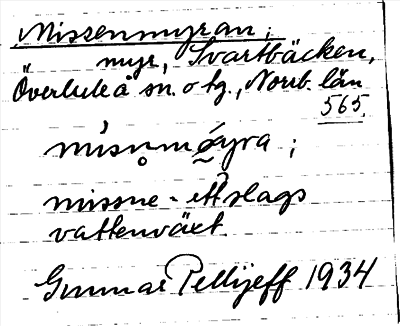 Missenmyran;
myr, Svartbäcken,
Överluleå sn. o tg., Norrb. län
565.
missne - ett slags
vattenväxt.
Gunnar Pellijeff 1934